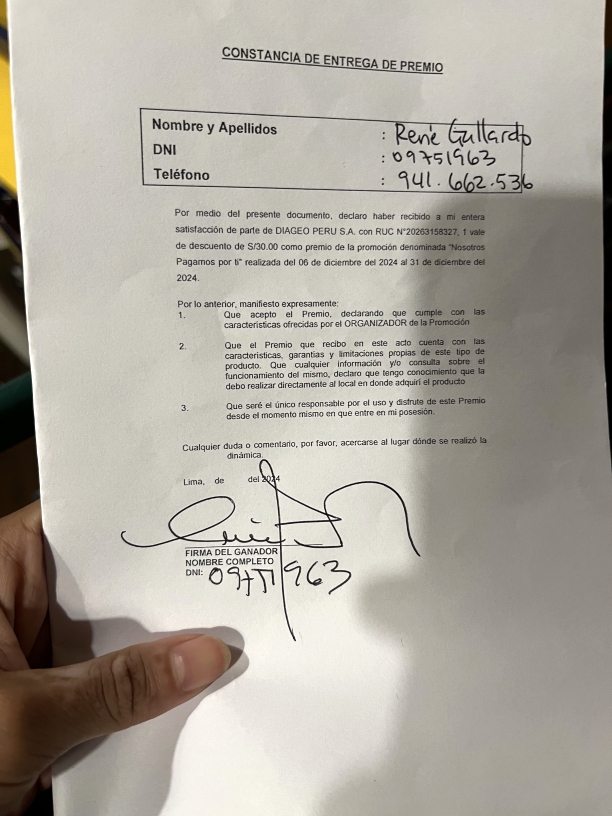 CONSTANCIA DE ENTREGA DE PREMIO
Nombre y Apellidos : René Gallardo
DNI : 09751963
Teléfono : 941.662.536
Por medio del presente documento, declaro haber recibido a mi entera
satisfacción de parte de DIAGEO PERU S.A. con RUC N°20263158327, 1 vale
de descuento de S/30.00 como premio de la promoción denominada "Nosotros
Pagamos por ti" realizada del 06 de diciembre del 2024 al 31 de diciembre del
2024.
Por lo anterior, manifiesto expresamente:
1. Que acepto el Premio, declarando que cumple con las
características ofrecidas por el ORGANIZADOR de la Promoción
2. Que el Premio que recibo en este acto cuenta con las
características, garantías y limitaciones propias de este tipo de
producto. Que cualquier información y/o consulta sobre el
funcionamiento del mismo, declaro que tengo conocimiento que la
debo realizar directamente al local en donde adquirí el producto
3. Que seré el único responsable por el uso y disfrute de este Premio
desde el momento mismo en que entre en mi posesión.
Cualquier duda o comentario, por favor, acercarse al lugar dónde se realizó la
dinámica.
Lima, de del 2024
FIRMA DEL GANADOR
NOMBRE COMPLETO
DNI: 09751963